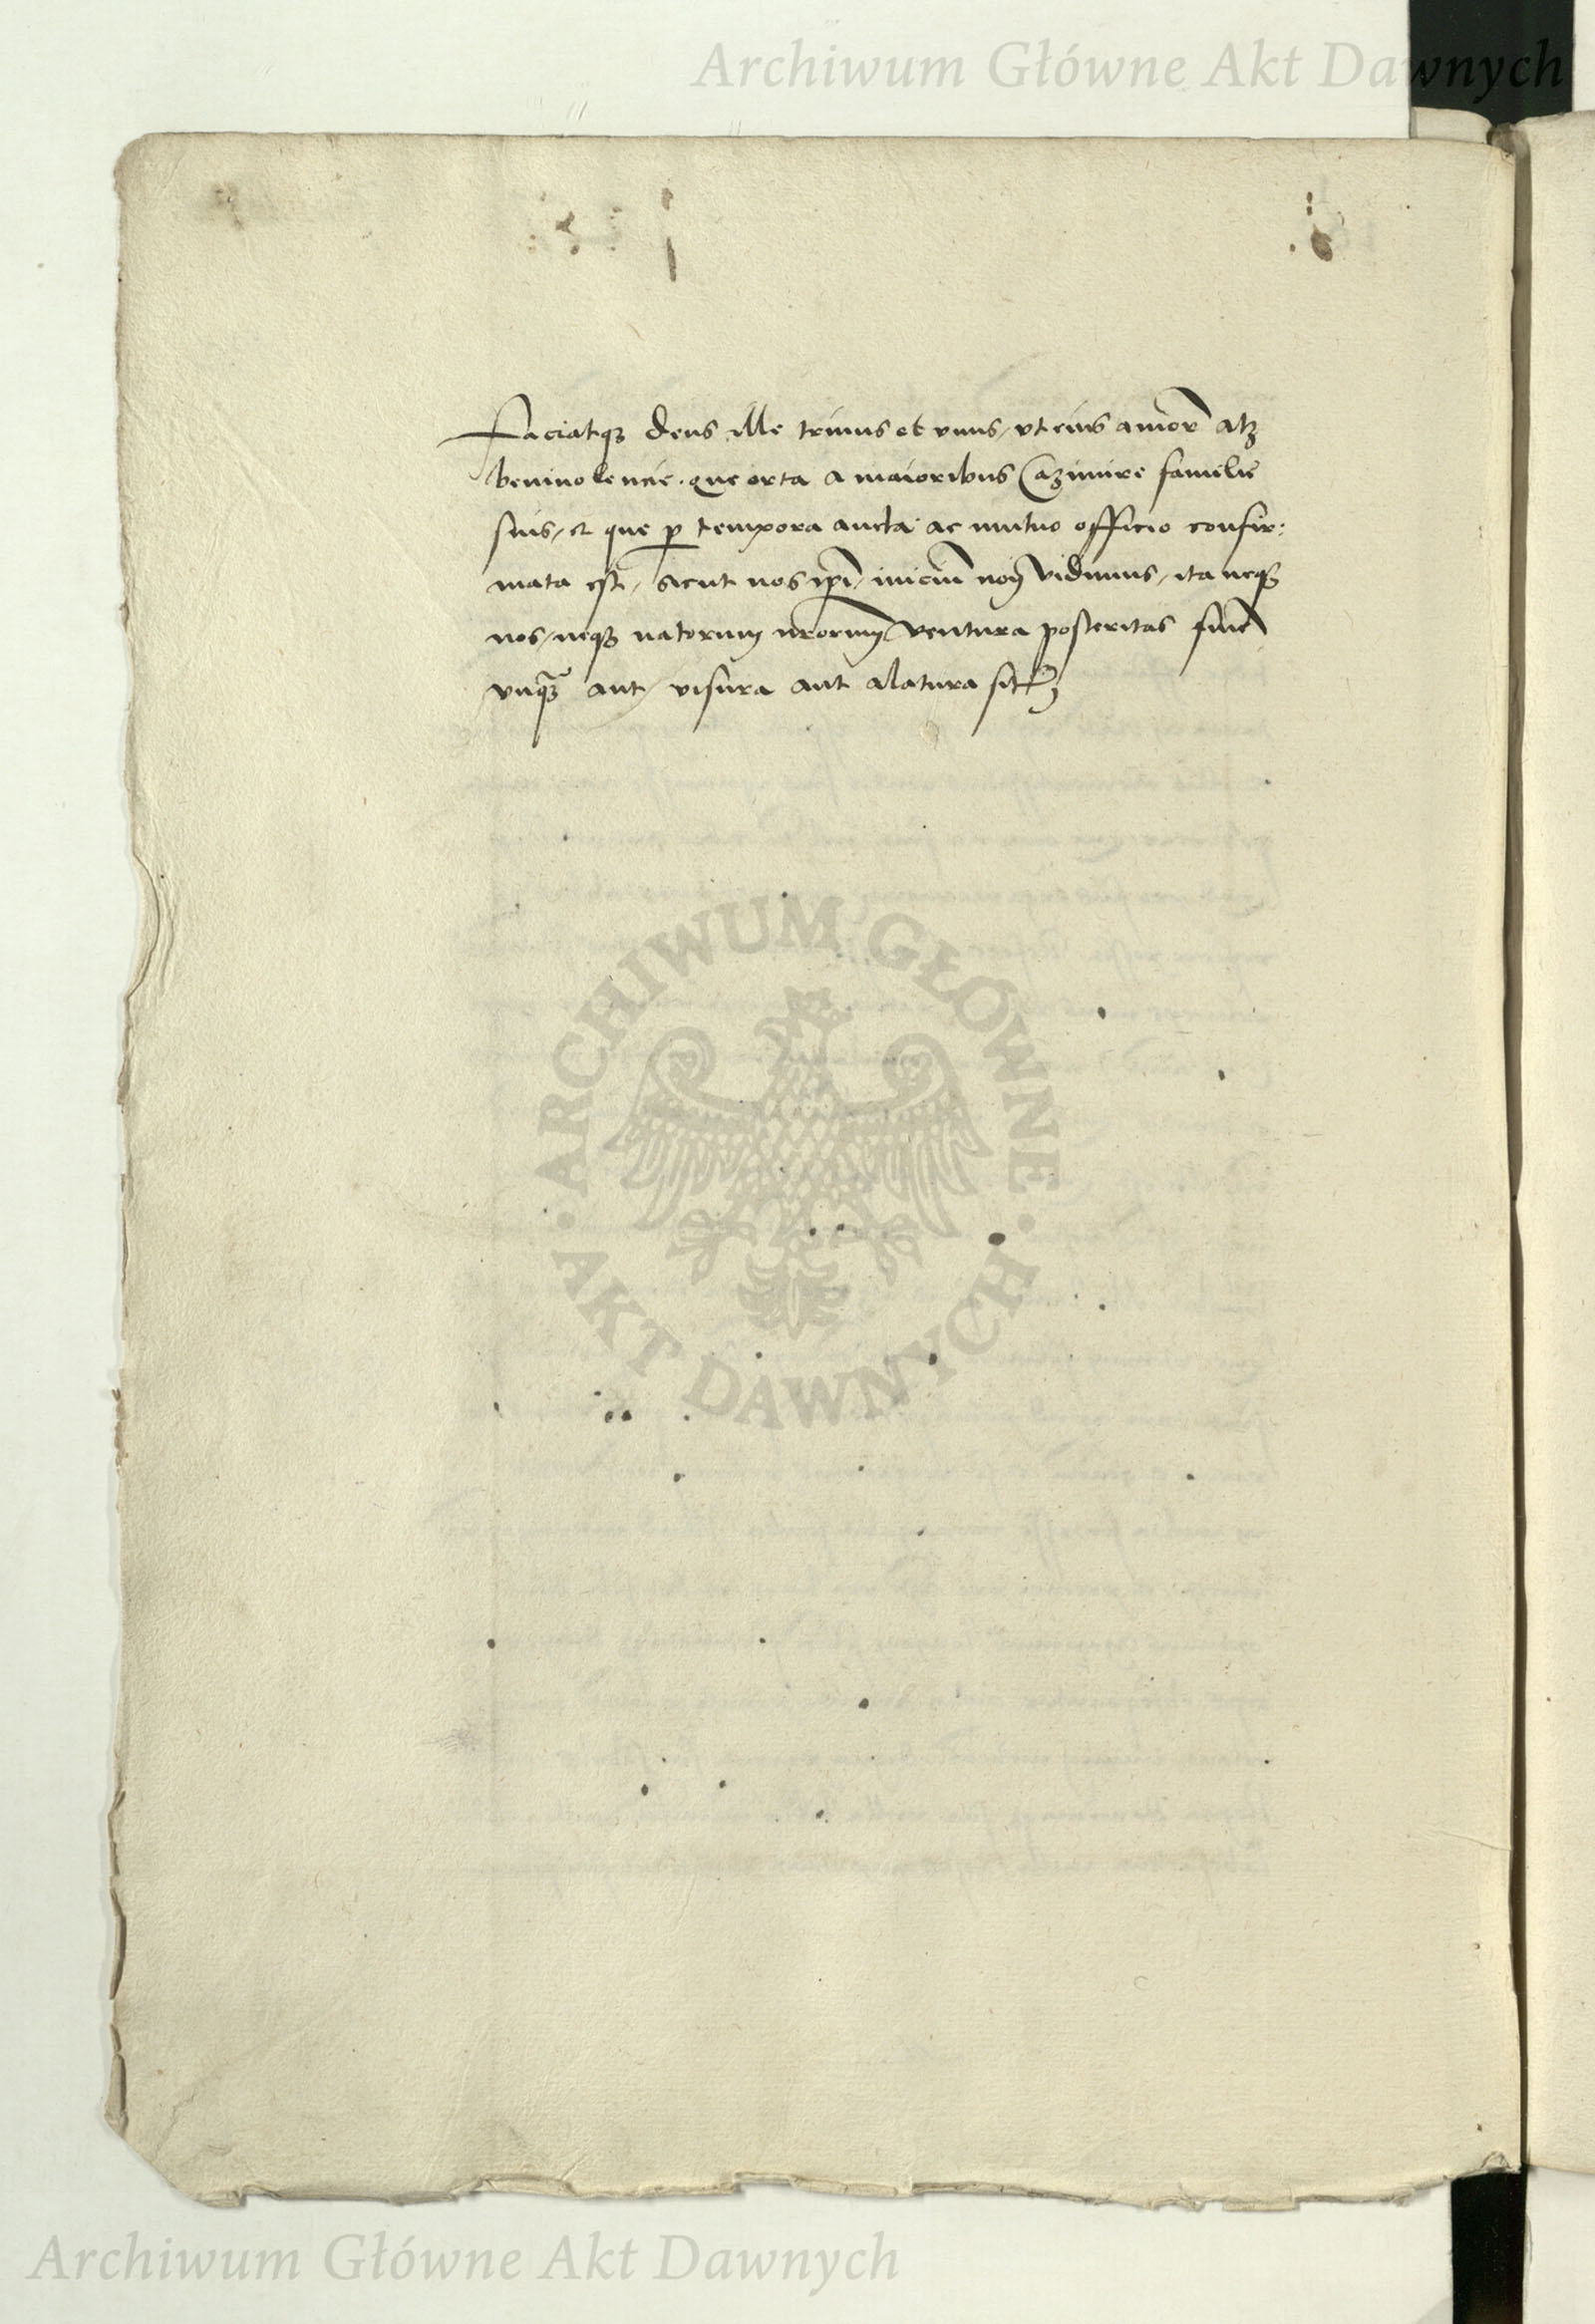 Archiwum Główne Akt Dawnych
Faciatqꝫ deus ille trinus et vnus, vt eius amor̄ atqꝫ
beniuolencie. que orta a maioribus Cazimire familie
suis, et que ꝑ tempora aucta ac mutuo officio confir:
mata est, sicut nos ip̄i, iniciū non vidimus, ita neqꝫ
nos, neqꝫ natorum nr̄orum ventura posteritas finē
vnqꝫ̄ aut, visura aut alatura sit
ARCHIWUM GŁÓWNE
AKT DAWNYCH
Archiwum Główne Akt Dawnych